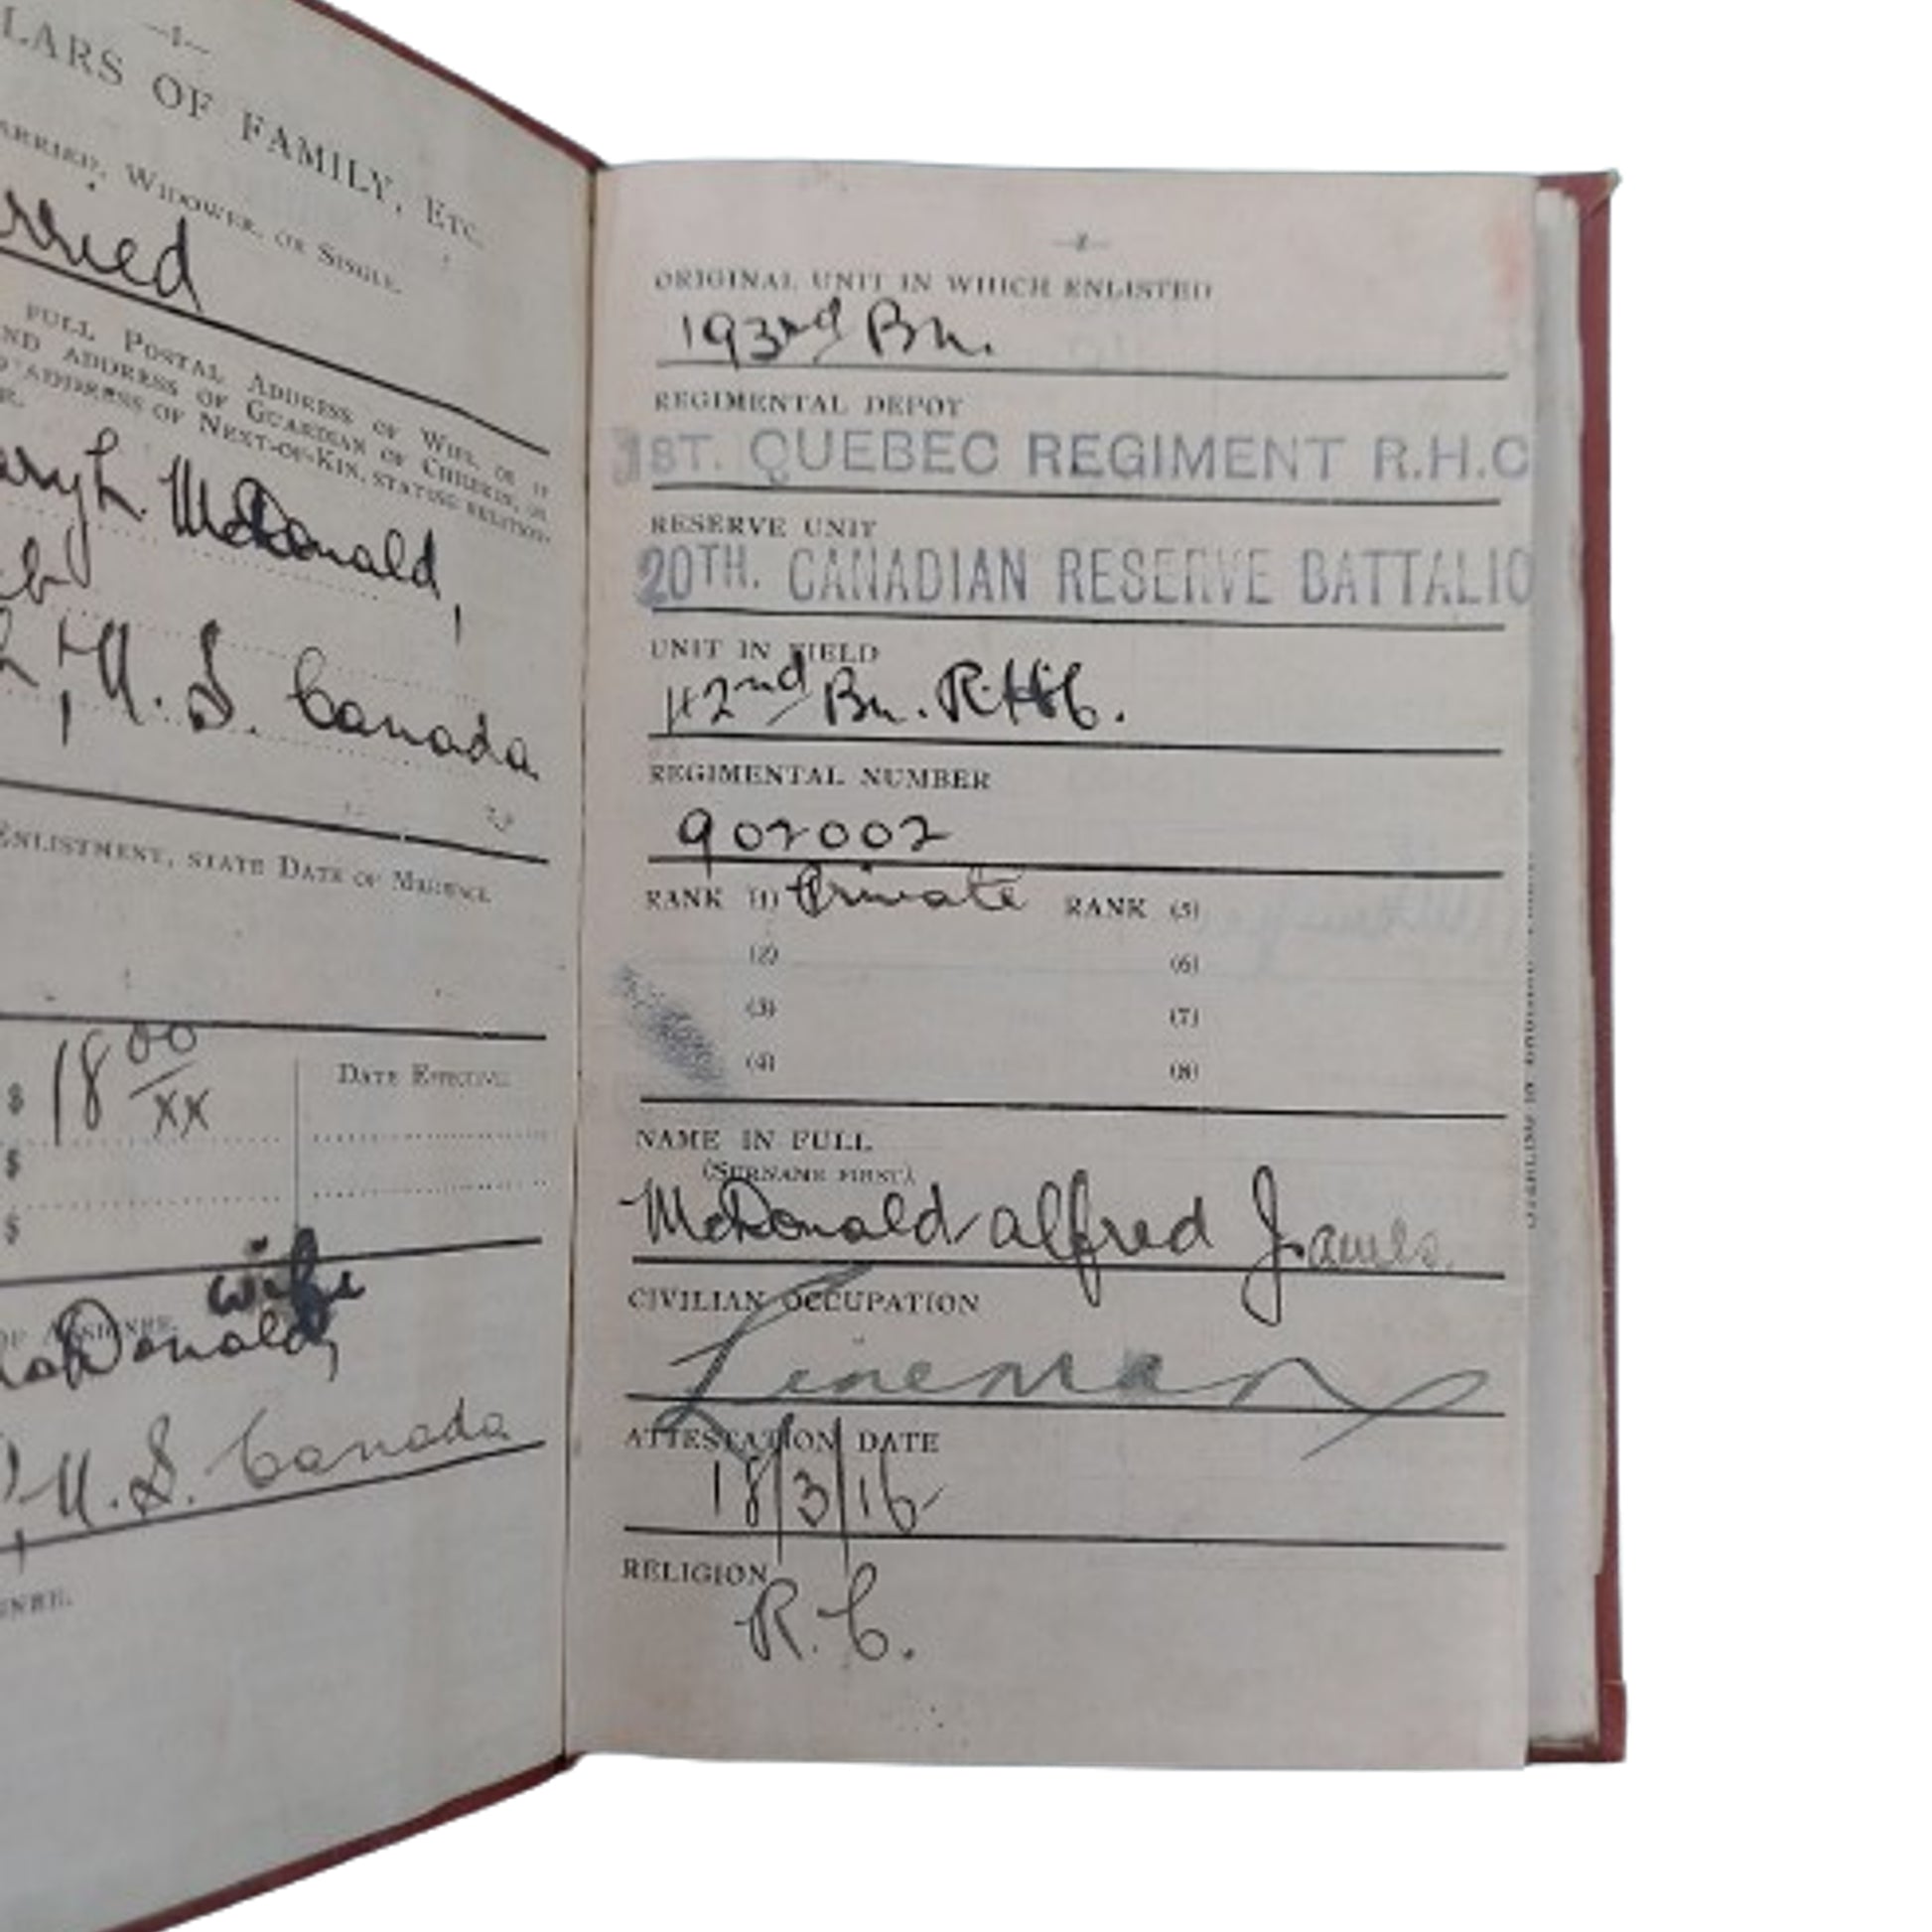 —1—
LARS OF FAMILY, ETC.
ARRIED, WIDOWER, OR SINGLE.
rried
FULL POSTAL ADDRESS OF WIFE, OR IF
ND ADDRESS OF GUARDIAN OF CHILDREN, OR
ADDRESS OF NEXT-OF-KIN, STATING RELATION-
ary L. McDonald,
N. S. Canada
ENLISTMENT, STATE DATE OF MARRIAGE
$ 18 00/xx
DATE EFFECTIVE
$
$
wife
OF ASSIGNEE.
Donald,
N. S. Canada
GNEE.
—2—
ORIGINAL UNIT IN WHICH ENLISTED
193rd Bn.
REGIMENTAL DEPOT
1ST. QUEBEC REGIMENT R.H.C
RESERVE UNIT
20TH. CANADIAN RESERVE BATTALIO
UNIT IN FIELD
42nd Bn. R.H.C.
REGIMENTAL NUMBER
902002
RANK (1) Private RANK (5)
(2) (6)
(3) (7)
(4) (8)
NAME IN FULL
(SURNAME FIRST)
McDonald alfred James.
CIVILIAN OCCUPATION
Lineman
ATTESTATION DATE
18/3/16
RELIGION
R. C.